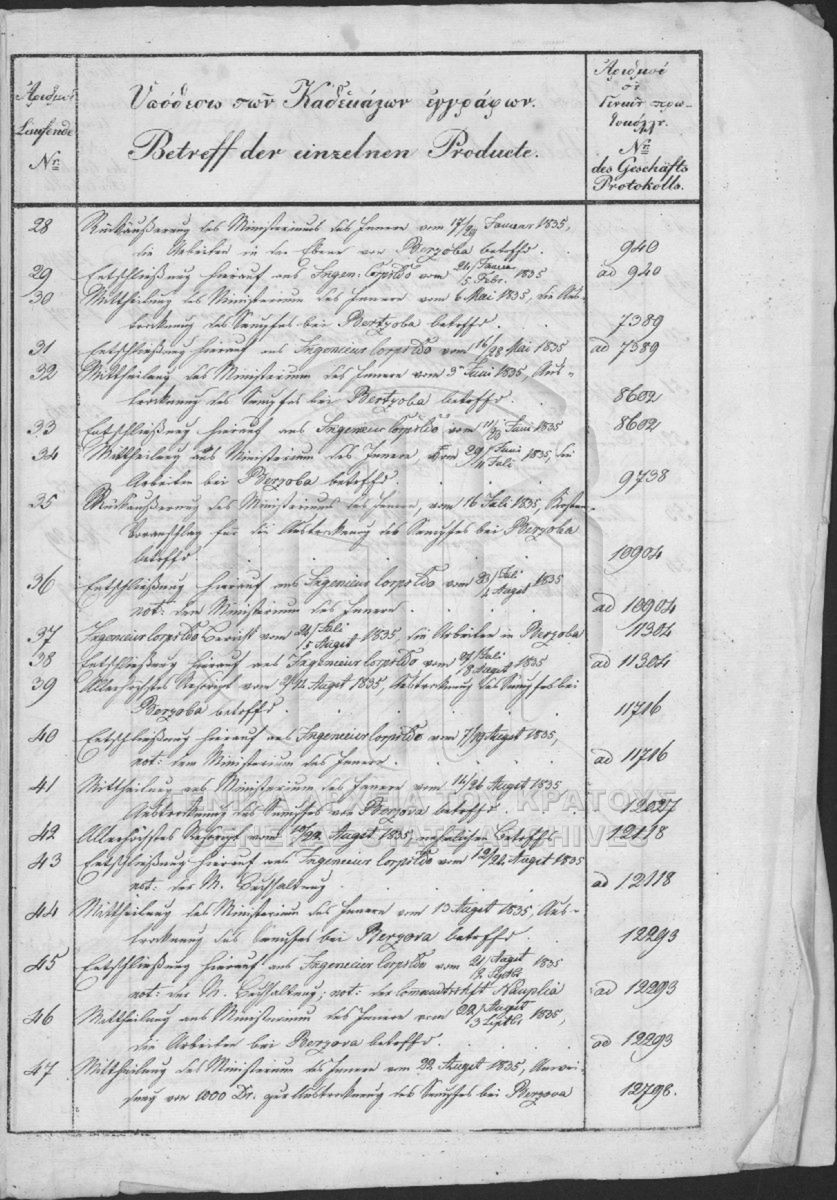 Ἀριθμοὶ
Laufende
Nr:
Ὑπόθεσις τῶν Καθεκάστων ἐγγράφων.
Betreff der einzelnen Producte.
Ἀριθμοὶ
τοῦ
Γενικοῦ πρω-
τοκόλλ.
Nr:
des Geschäfts
Protokolls.
28 Rückäußerung des Ministeriums des Innern vom 17/29 Januar 1835,
die Arbeiten in der Ebene von Berzoba betreffd. 940
29 Entschließung hierauf ans Ingen: Corps Cdo vom 24/Januar 5 Febr. 1835 ad 940
30 Mittheilung des Ministerium des Innern vom 6 Mai 1835, die Aus-
trocknung des Sumpfes bei Bertzoba betreffd. 7389
31 Entschließung hierauf ans Ingenieur Corps Cdo vom 16/28 Mai 1835 ad 7389
32 Mittheilung des Ministerium des Innern vom 3 Juni 1835, Aus-
trocknung des Sumpfes bei Bertzoba betreffd. 8602
33 Entschließung hierauf ans Ingenieur Corps Cdo vom Juni 1835 8602
34 Mittheilung aus Ministerium des Innern vom 29/Juni Juli 1835, die
Arbeiten bei Berzoba betreffd. 9738
35 Rückäußerung des Ministeriums des Innern, vom 16 Juli 1835, Kosten-
Voranschlag für die Austrocknung des Sumpfes bei Berzoba
betreffd 10904
36 Entschließung hierauf ans Ingenieur Corps Cdo vom 23/Juli 4 Augst 1835
not: dem Ministerium des Innern. ad 10904
37 Ingenieur Corps Cdo Bericht vom 24/Juli 5 Augst 1835, die Arbeiten in Berzoba 11304
38 Entschließung hierauf ans Ingenieur Corps Cdo vom 27/Juli 8 Augst 1835 ad 11304
39 Allerhöchstes Rescript vom 2/14 Augst 1835, Austrocknung des Sumpfes bei
Berzoba betreffd 11716
40 Entschließung hierauf ans Ingenieur Corps Cdo vom 7/19 Augst 1835,
not: dem Ministerium des Innern. ad 11716
41 Mittheilung aus Ministerium des Innern vom Augst 1835
Austrocknung des Sumpfes von Berzova betreffd. 12027
42 Allerhöchstes Rescript vom Augst 1835, Betreffs 12118
43 Entschließung hierauf ans Ingenieur Corps Cdo vom 12/24 Augst 1835
not: der M. Buchhaltung. ad 12118
44 Mittheilung des Ministerium des Innern vom 13 Augst 1835 Aus-
trocknung des Sumpfes bei Berzova betreffd. 12293
45 Entschließung hierauf ans Ingenieur Corps Cdo vom 21/Augst 2 Septbr 1835
not: der M. Buchhaltung; not: der Commandtschft Nauplia ad 12293
46 Mittheilung aus Ministerium des Innern vom 22/Augst 3 Septbr 1835,
die Arbeiten bei Berzova betreffd. ad 12293
47 Mittheilung des Ministerium des Innern vom 22. Augst 1835, Anwei-
sung von 1000 Dr. zur Austrocknung des Sumpfes bei Berzova 12798.
ΓΕΝΙΚΑ ΑΡΧΕΙΑ ΤΟΥ ΚΡΑΤΟΥΣ
GENERAL STATE ARCHIVES